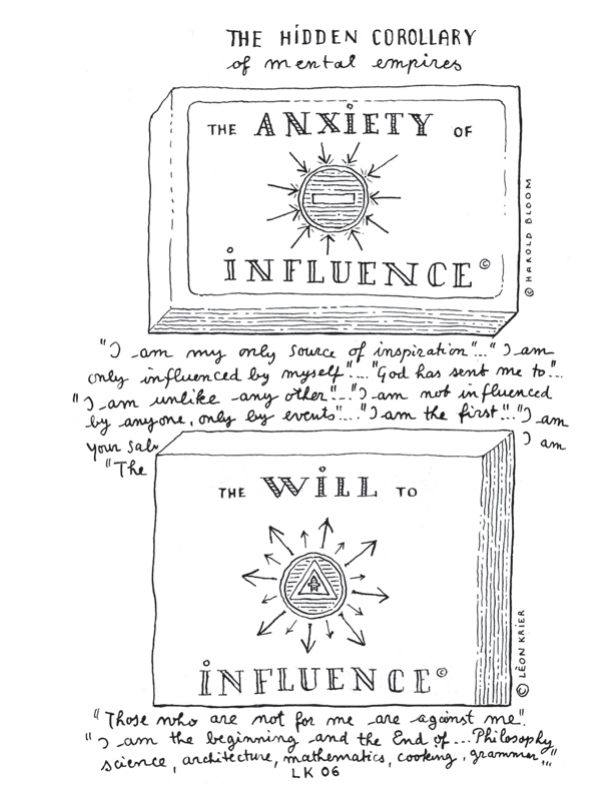 THE HiDDEN COROLLARY
of mental empires
THE ANXiETY OF
iNFLUENCE©
© HAROLD BLOOM
"I am my only source of inspiration"..." I am
only influenced by myself"...."God has sent me to"...
"I am unlike any other"..."I am not influenced
by anyone, only by events"...."I am the first"..."I am
your
I am
"The
THE WiLL TO
iNFLUENCE©
© LÈON KRIER
"Those who are not for me are against me".
"I am the beginning and the End of ... Philosophy,
science, architecture, mathematics, cooking, grammar,,,"
LK 06